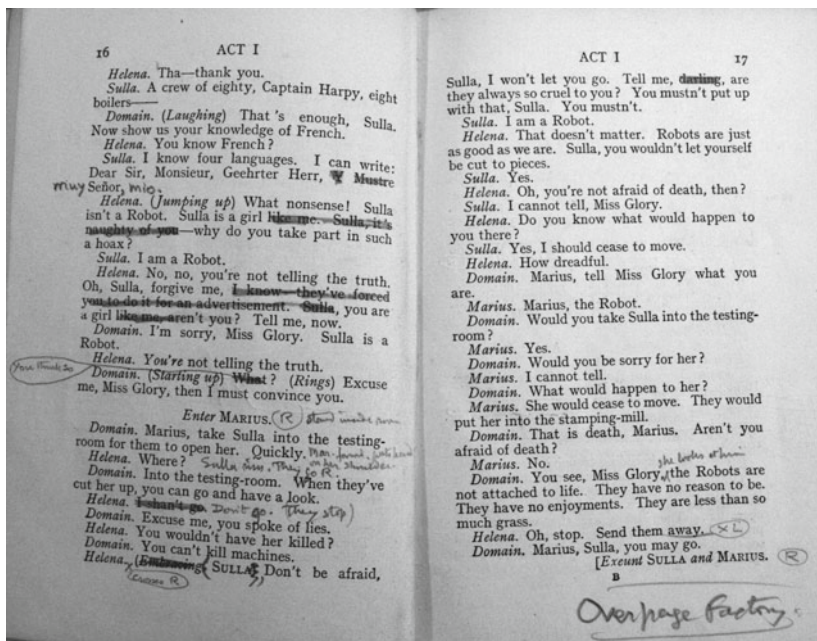 16 ACT I
Helena. Tha—thank you.
Sulla. A crew of eighty, Captain Harpy, eight
boilers—
Domain. (Laughing) That's enough, Sulla.
Now show us your knowledge of French.
Helena. You know French?
Sulla. I know four languages. I can write:
Dear Sir, Monsieur, Geehrter Herr, Mustre
muy Señor, mio.
Helena. (Jumping up) What nonsense! Sulla
isn't a Robot. Sulla is a girl like me. Sulla, it's
naughty of you—why do you take part in such
a hoax?
Sulla. I am a Robot.
Helena. No, no, you're not telling the truth.
Oh, Sulla, forgive me, I know—they've forced
you to do it for an advertisement. Sulla, you are
a girl like me, aren't you? Tell me, now.
Domain. I'm sorry, Miss Glory. Sulla is a
Robot.
Helena. You're not telling the truth.
you think so
Domain. (Starting up) What? (Rings) Excuse
me, Miss Glory, then I must convince you.
Enter MARIUS. R stand inside
Domain. Marius, take Sulla into the testing-
room for them to open her. Quickly.
Helena. Where? Sulla They go R. on her shoulder
Domain. Into the testing-room. When they've
cut her up, you can go and have a look.
Helena. I shan't go. Don't go. They stop)
Domain. Excuse me, you spoke of lies.
Helena. You wouldn't have her killed?
Domain. You can't kill machines.
Helena. (Embracing SULLA), Don't be afraid,
crosses R
ACT I 17
Sulla, I won't let you go. Tell me, darling, are
they always so cruel to you? You mustn't put up
with that, Sulla. You mustn't.
Sulla. I am a Robot.
Helena. That doesn't matter. Robots are just
as good as we are. Sulla, you wouldn't let yourself
be cut to pieces.
Sulla. Yes.
Helena. Oh, you're not afraid of death, then?
Sulla. I cannot tell, Miss Glory.
Helena. Do you know what would happen to
you there?
Sulla. Yes, I should cease to move.
Helena. How dreadful.
Domain. Marius, tell Miss Glory what you
are.
Marius. Marius, the Robot.
Domain. Would you take Sulla into the testing-
room?
Marius. Yes.
Domain. Would you be sorry for her?
Marius. I cannot tell.
Domain. What would happen to her?
Marius. She would cease to move. They would
put her into the stamping-mill.
Domain. That is death, Marius. Aren't you
afraid of death?
Marius. No.
she looks at him
Domain. You see, Miss Glory, the Robots are
not attached to life. They have no reason to be.
They have no enjoyments. They are less than so
much grass.
Helena. Oh, stop. Send them away. XL
Domain. Marius, Sulla, you may go.
[Exeunt SULLA and MARIUS. R
B
Overpage Factory.